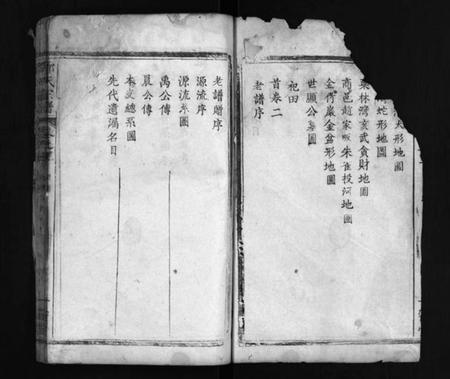 形地圖
蛇形地圖
林灣玄武貪財地圖
商邑趙家畈朱雀投河地圖
金竹巖金盆形地圖
世顯公墓圖
祀田
首卷二
老譜序
老譜贈序
源流序
源流系圖
禹公傳
農公傳
本支總系圖
先代遺漏名目